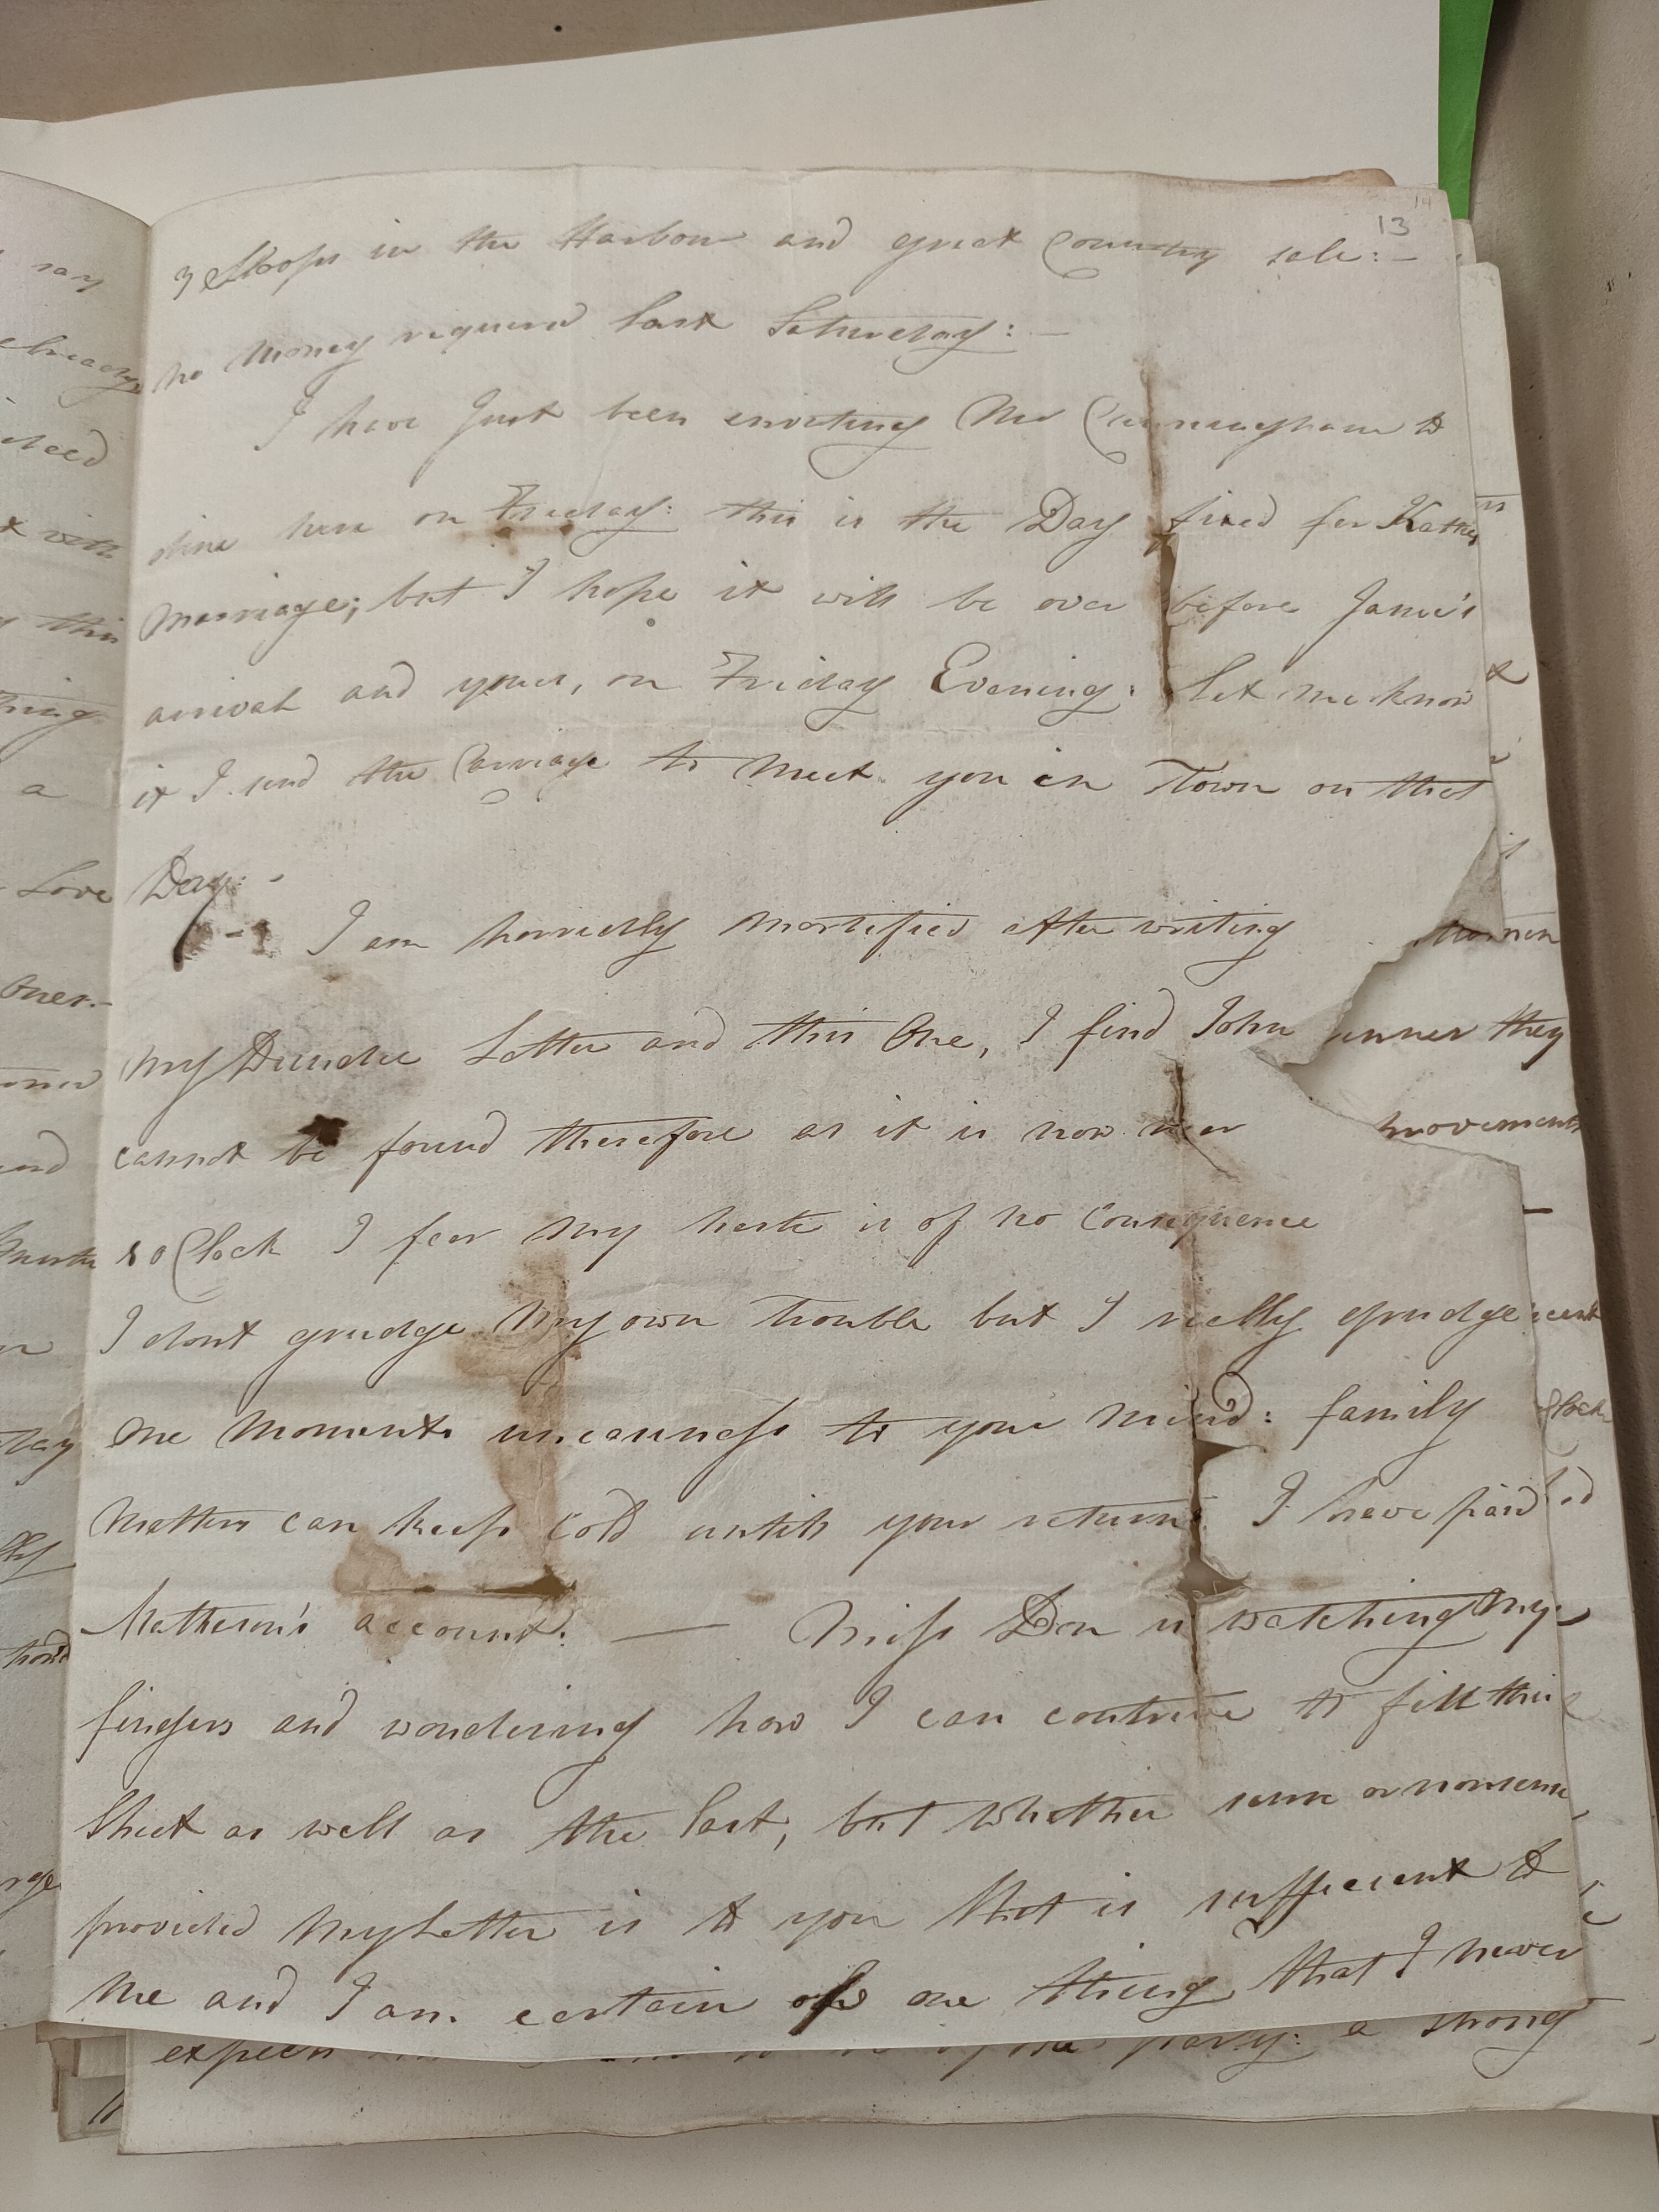 13
14
3 Sloops in the Harbour and great Country sale:—
no money required last Saturday:—
I have Just been inviting Mr Cunningham to
dine here on Friday: this is the Day fixed for Kattys
Marriage; but I hope it will be over before Jamie's
arrival and yours, on Friday Evening: let me know
if I send the Carriage to meet you in Town on that
Day:-
I am horridly mortified after writing
my Dundee Letter and this One, I find John
cannot be found therefore as it is now near
8 oClock I fear my haste is of no Consequence
I dont grudge my own trouble but I really grudge
one moments uneasiness to your mind: family
matters can keep cold untill your return: I have paid
Mathewson's account: — Miss Don is watching my
fingers and wondering how I can contrive to fill this
Sheet as well as the last, but whether sense or nonsense
provided my Letter is to you that is sufficient to
me and I am certain of one thing that I never
say
already
with
this
a
Love
Ones.-
and
movements
they
party: a strong